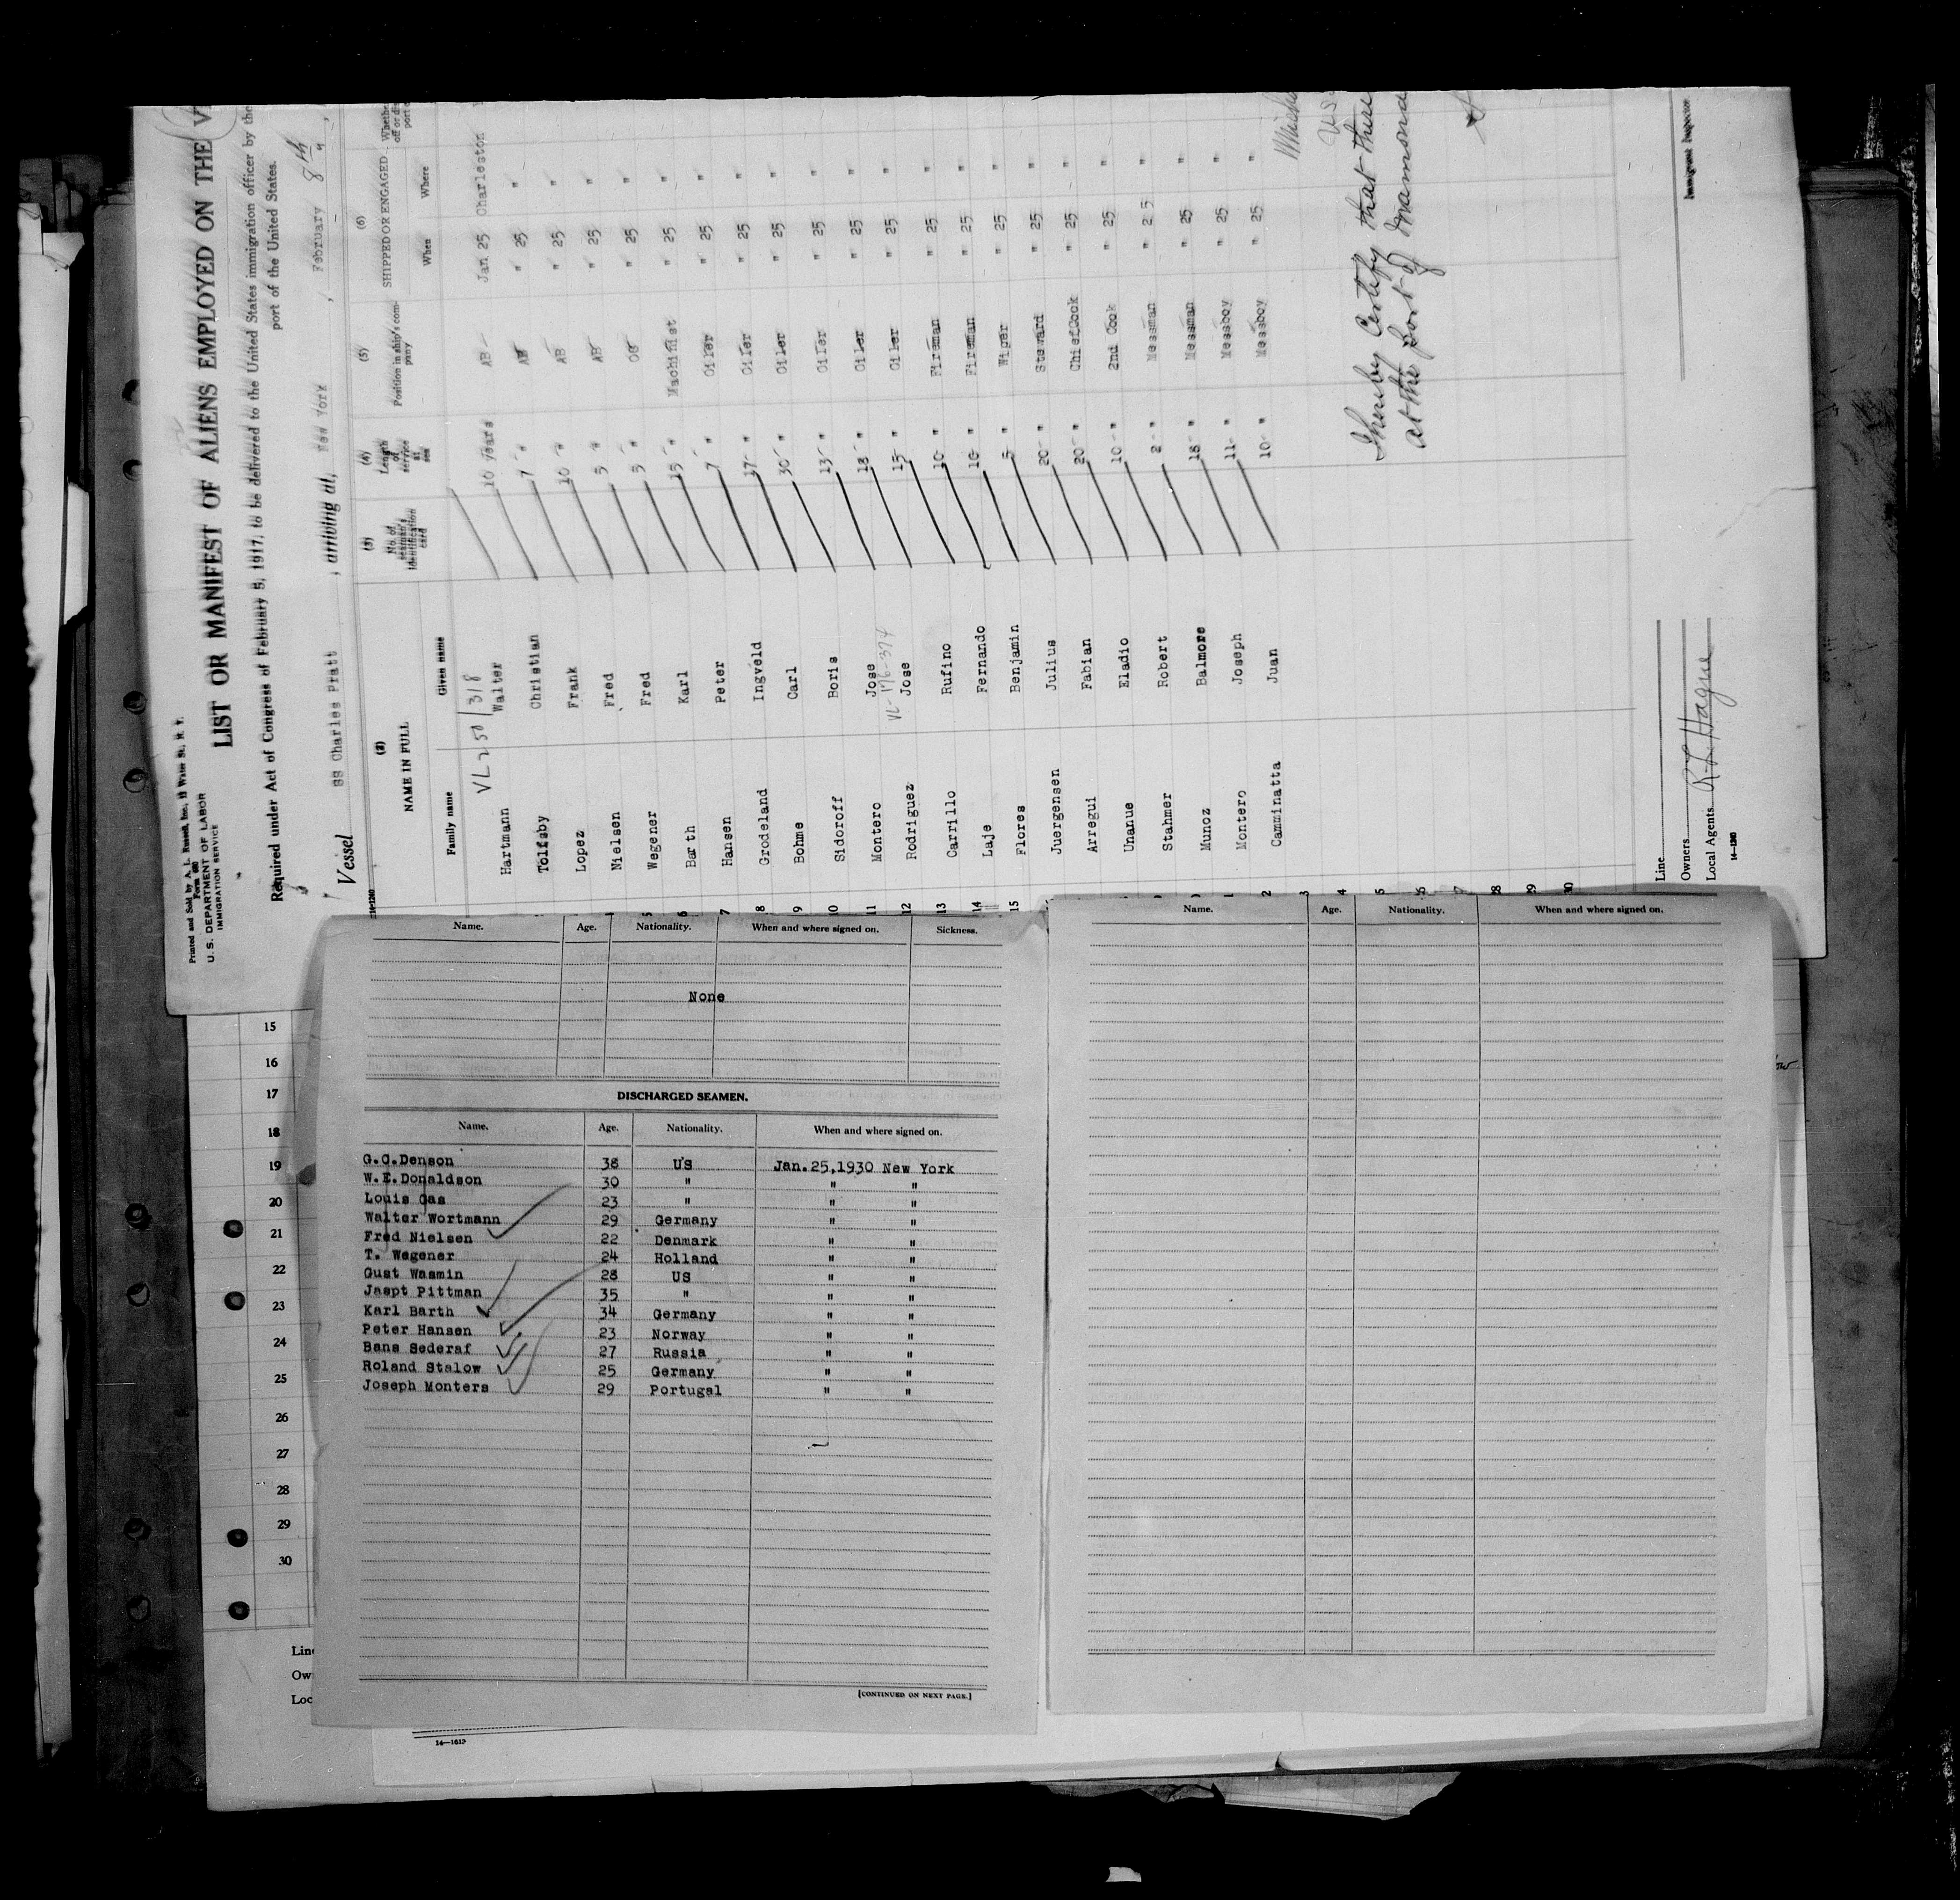 Printed and Sold by A. L. Russell, Inc., Water St., N. Y.
Form 680
U. S. DEPARTMENT OF LABOR
IMMIGRATION SERVICE
LIST OR MANIFEST OF ALIENS EMPLOYED ON THE
Required under Act of Congress of February 5, 1917, to be delivered to the United States immigration officer by the
port of the United States.
Vessel SS Charles Pratt , arriving at, New York , February 8th
14-1240
(2) (3) (4) (5) (6)
NAME IN FULL No. of seaman's identification card Length of service at sea Position in ship's company SHIPPED OR ENGAGED
Family name Given name When Where
VL 250/318
Hartmann Walter 10 years AB Jan 25 Charleston
Tolfsby Christian 7 " AB " 25 "
Lopez Frank 10 " AB " 25 "
Nielsen Fred 5 " AB " 25 "
5 Wegener Fred 5 " OS " 25 "
6 Barth Karl 15 " Machinist " 25 "
7 Hansen Peter 7 " Oiler " 25 "
8 Grodeland Ingveld 17 " Oiler " 25 "
9 Bohme Carl 30 " Oiler " 25 "
10 Sidoroff Boris 13 " Oiler " 25 "
11 Montero Jose 18 " Oiler " 25 "
VL-176-374
12 Rodriguez Jose 15 " Oiler " 25 "
13 Carrillo Rufino 10 " Fireman " 25 "
14 Laje Fernando 10 " Fireman " 25 "
15 Flores Benjamin 5 " Wiper " 25 "
Juergensen Julius 20 " Steward " 25 "
Arregui Fabian 20 " Chief Cook " 25 "
Unanue Eladio 10 " 2nd Cook " 25 "
Stahmer Robert 2 " Messman " 25 "
Munoz Balmore 18 " Messman " 25 "
1 Montero Joseph 11 " Messboy " 25 "
2 Camminatta Juan 10 " Messboy " 25 "
3
4
5
26
7
28
29
30
I hereby Certify that there
at the port of
Line
Owners
Local Agents R L Hague
14-1240
Immigrant Inspector
Name. Age. Nationality. When and where signed on. Sickness.
None
DISCHARGED SEAMEN.
Name. Age. Nationality. When and where signed on.
G.C.Denson 38 US Jan.25,1930 New York
W.E.Donaldson 30 " " "
Louis Gas 23 " " "
Walter Wortmann 29 Germany " "
Fred Nielsen 22 Denmark " "
T. Wegener 24 Holland " "
Gust Wasmin 28 US " "
Jaspt Pittman 35 " " "
Karl Barth 34 Germany " "
Peter Hansen 23 Norway " "
Bans Sederaf 27 Russia " "
Roland Stalow 25 Germany " "
Joseph Monters 29 Portugal " "
[CONTINUED ON NEXT PAGE.]
Name. Age. Nationality. When and where signed on.
15
16
17
18
19
20
21
22
23
24
25
26
27
28
29
30
Line
Ow
Loc
14—1613